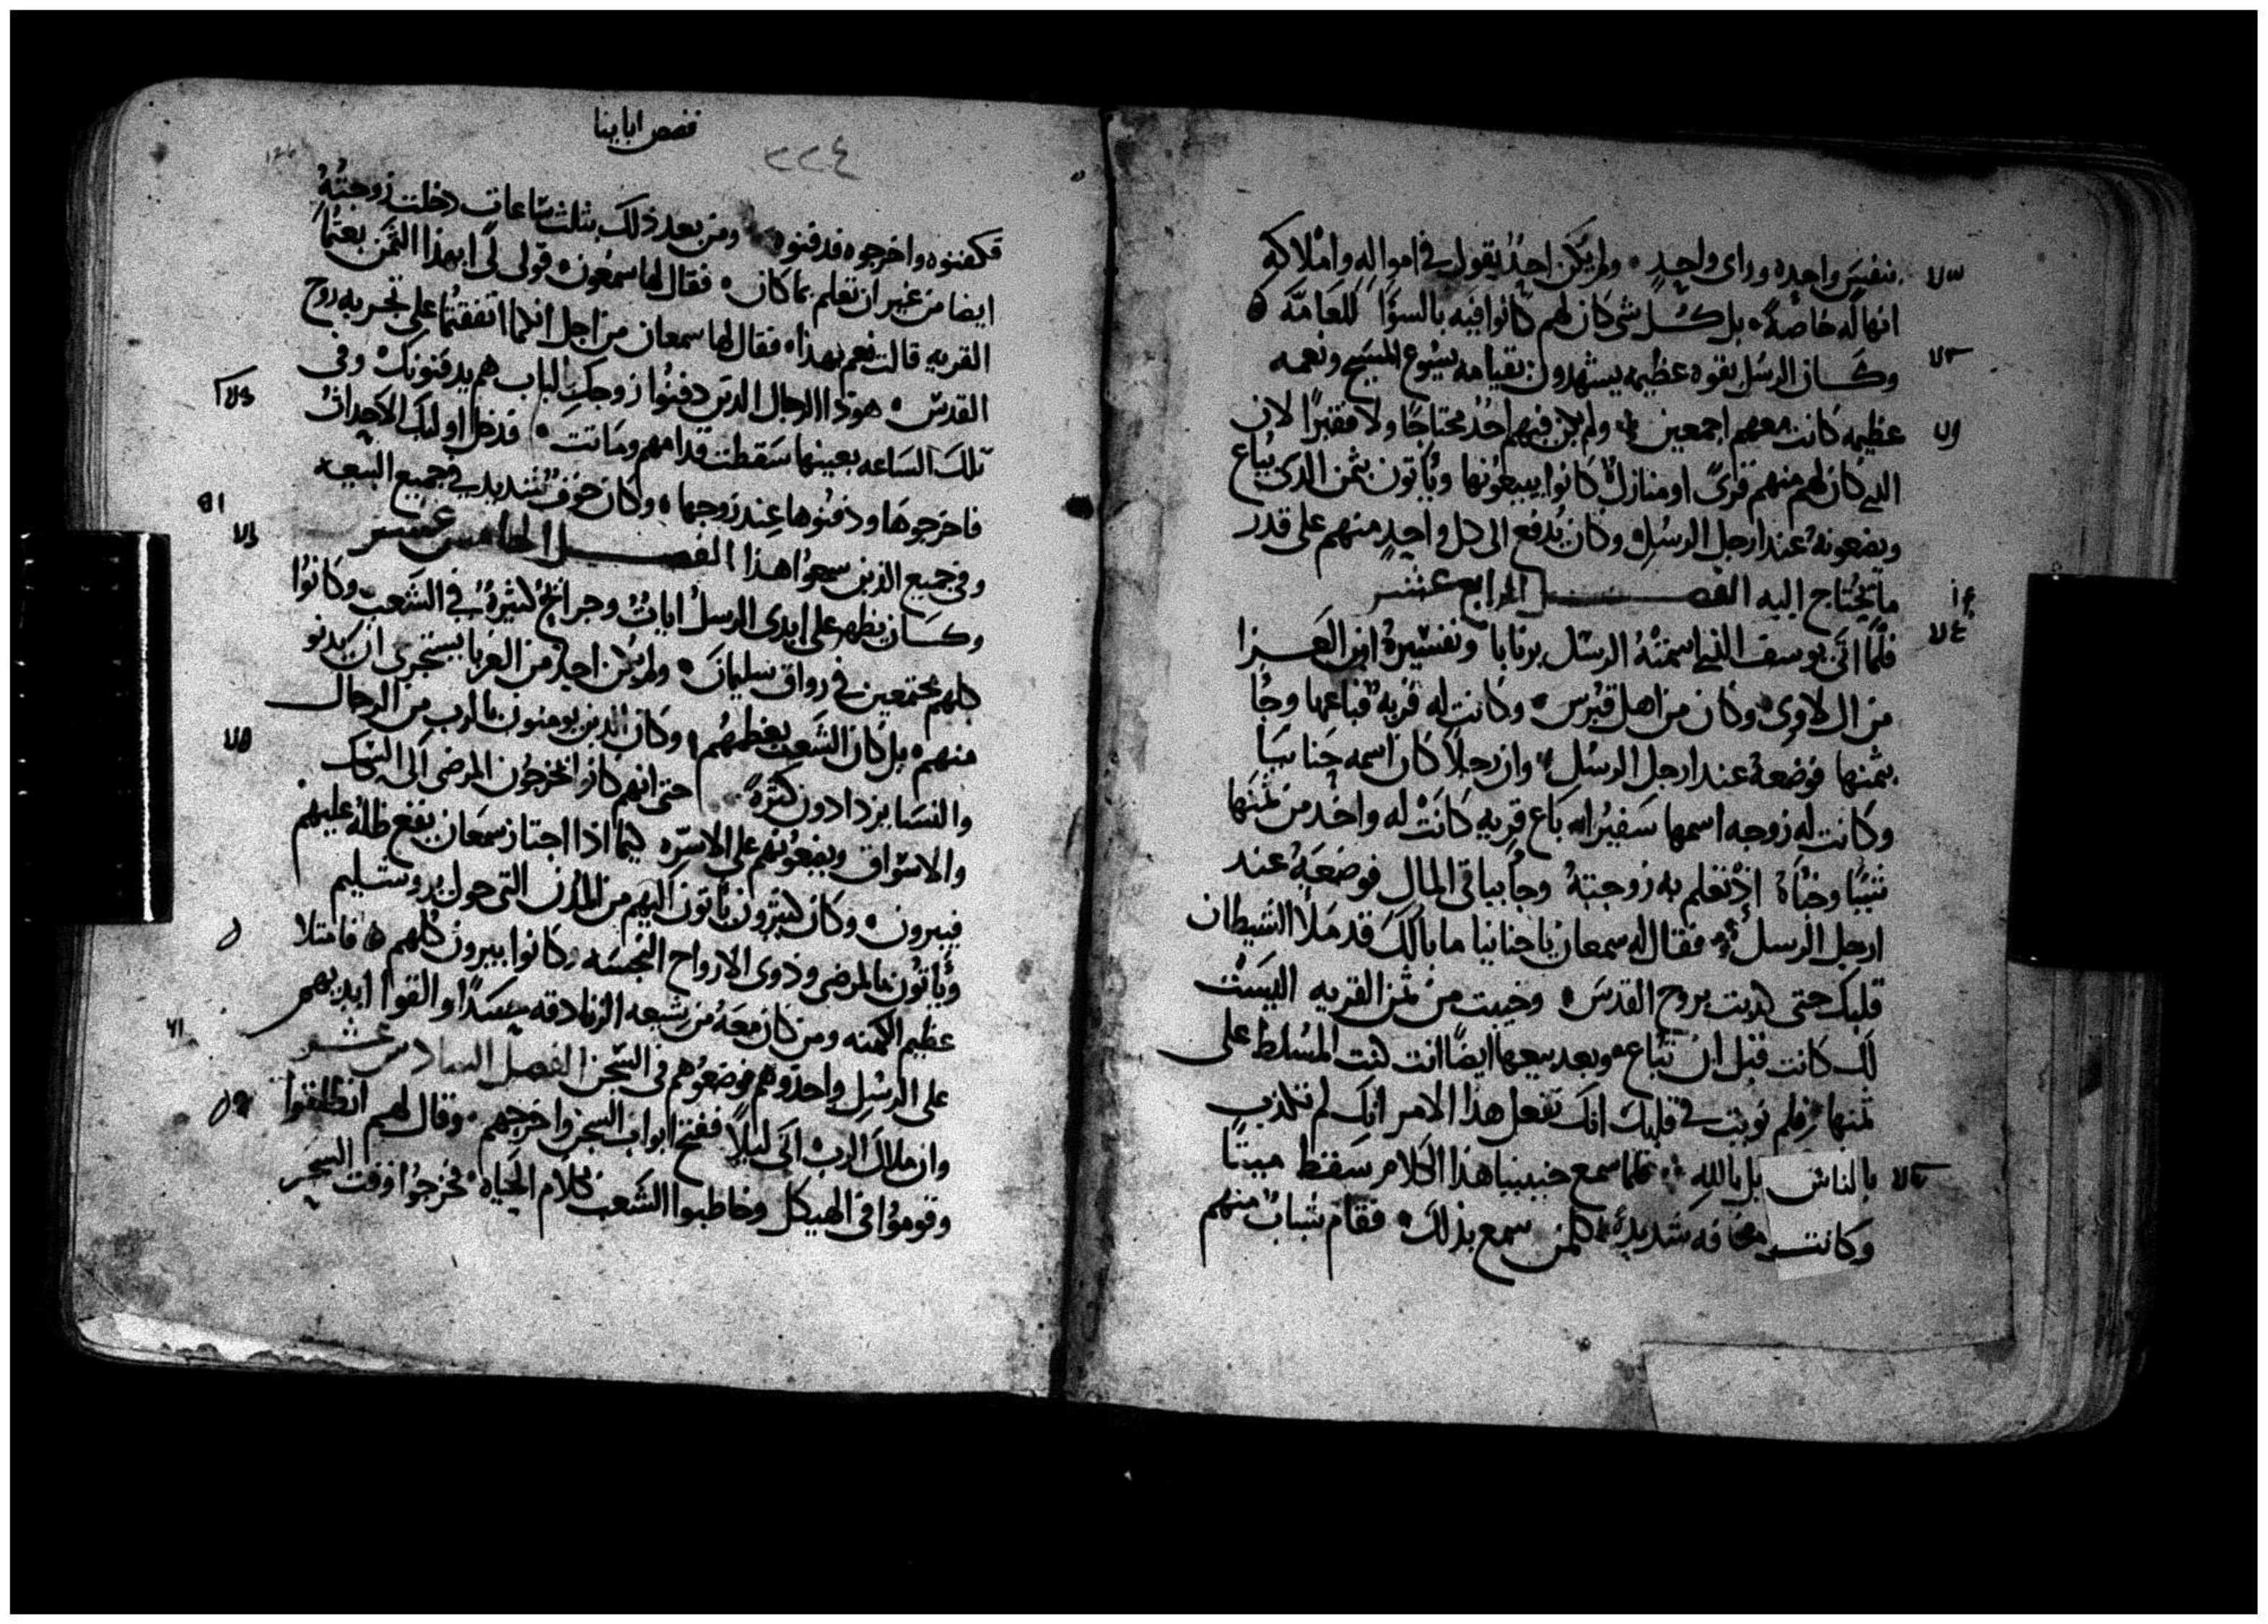 بنفس واحده وراى واحدٍ ولم يكن احدٌ يقول في امواله واملاكه
انها له خاصةً بل كل شى كان لهم كانوا فيه بالسؤا للعامّة
وكان الرسل بقوه عظيمه يشهدون بقيامه يسوع المسيح ونعمه
عظيمه كانت معهم اجمعين ولم يكن فيهم احدٌ محتاجًا ولا فقيرًا لان
الذي كان لهم منهم قرىً او منازل كانوا يبيعونها وياتون بثمن الذى يباع
ويضعونهُ عند ارجل الرسل وكان يُدفع الى كل واحدٍ منهم على قدر
ما يحتاج اليه الفصل الرابع عشر
فلما اتى يوسف الذي اسمتهُ الرسل برنابا وتفسيرهُ ابن العزا
من ال لاوى وكان من اهل قبرس وكانت له قريهٌ فباعها وجا
بثمنها فوضعهُ عند ارجل الرسل وان رجلاً كان اسمه حنانيا
وكانت له زوجه اسمها سفيرا باع قريه كانت له واخد من ثمنها
شيًا وخباهُ اذ تعلم به زوجتهُ وجا بباقى المال فوضعهُ عند
ارجل الرسل فقال له سمعان يا حنانيا ما بالك قد ملا الشيطان
قلبك حتى كدبت بروح القدس وخبيت من ثمن القريه اليست
لك كانت قبل ان تباع وبعد بيعها ايضًا انت كنت المسلط على
ثمنها فلم نويت في قلبك انك تفعل هذا الامر انك لم تكذب
بالناس بل بالله فلما سمع حنينيا هذا الكلام سقط ميتًا
وكانت مخافه شديدة كلمن سمع بذلك فقام شباب منهم
قصص ابابنا
٢٢٤
فكفنوه واخرجوه فدفنوه ومن بعد ذلك بثلث ساعات دخلت زوجتُهُ
ايضا من غير ان تعلم بما كان فقال لها سمعون قولى لى ابهذا الثمن بعتُما
القريه قالت نعم بهذا فقال لها سمعان من اجل انكما اتفقتُما على تجربه روح
القدس هوذا الرجال الدين دفنُوا زوجكِ بالباب هم يدفنونكِ وفى
تلك الساعه بعينها سقطت قدامهم وماتت فدخل اوليك الاحداثُ
فاخرجوها ودفنُوها عند زوجها وكان خوفٌ شديد في جميع البيعه
وفي جميع الذين سمعُوا هذا الفصل الخامس عشر
وكان يظهر على ايدى الرسل اياتٌ وجرائحٌ كثيرةٌ في الشعب وكانوا
كلهم مجتمعين في رواق سليمان ولم يكن احدٌ من الغربا يستجرى ان يدنو
منهم بل كان الشعب يعظمهُم وكان الدين يومنون بالرب من الرجال
والنسا يزدادون كثرةً حتى انهم كانوا يخرجون المرضى الى السكك
والاسواق ويضعونهم على الاسرّه كيما اذا اجتاز سمعان يقع ظلهُ عليهم
فيبرون وكان كثيرون ياتون اليهم من المُدن التى حول يروشليم
وياتون بالمرضى وذوى الارواح النجسه وكانوا يبرون كلهم فامتلا
عظيم الكهنه ومن كان معهُ من شيعه الزنادقه حسدًا والقوا ايديهم
على الرسل واخذوهم فوضعوهم في السّجن الفصل السادس عشر
وان ملاك الربّ اتى ليلاً ففتح ابواب السجن واخرجهم وقال لهم انطلقوا
وقوموُا في الهيكل وخاطبوا الشعب بكلام الحياه فخرجُوا وقت السحر